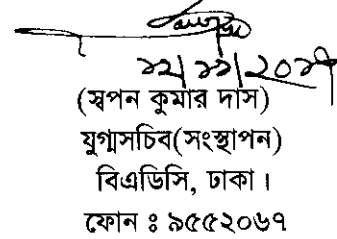 (স্বপন কুমার দাস)
যুগ্মসচিব(সংস্থাপন)
বিএডিসি, ঢাকা।
ফোন ঃ ৯৫৫২০৬৭